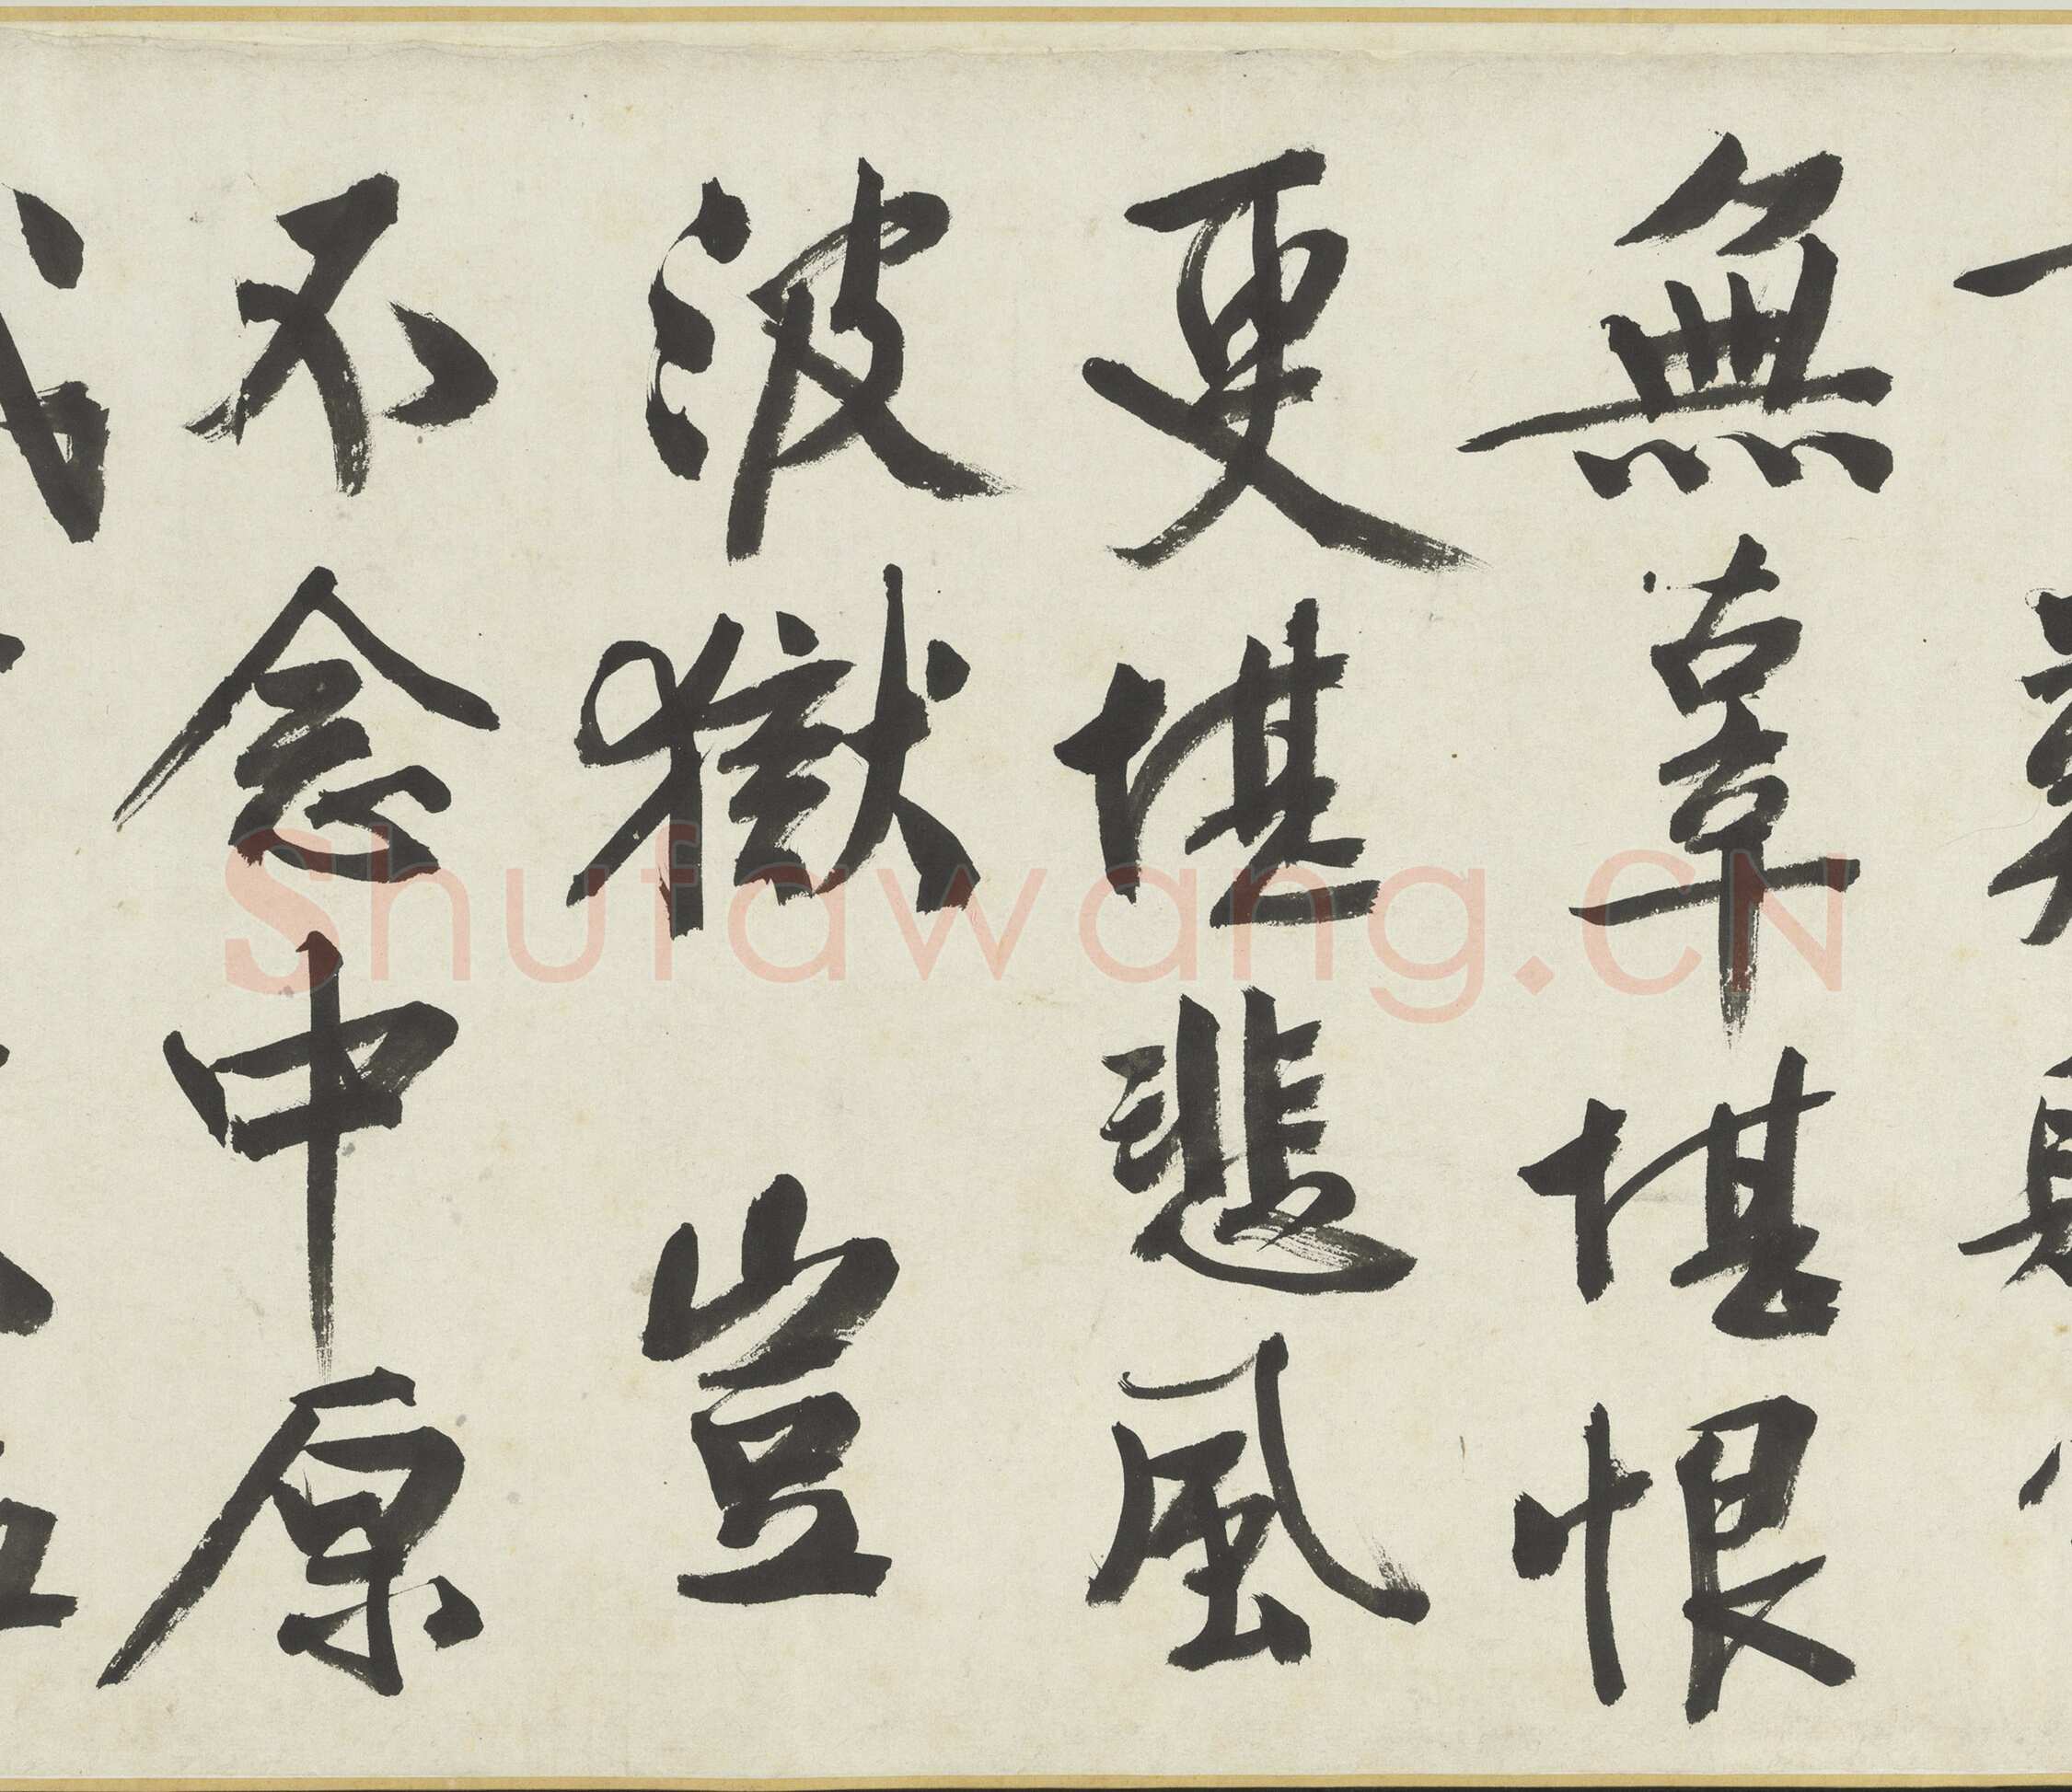 無辜堪恨
更堪悲風
波獄 豈
不念中原
Shufawang.CN